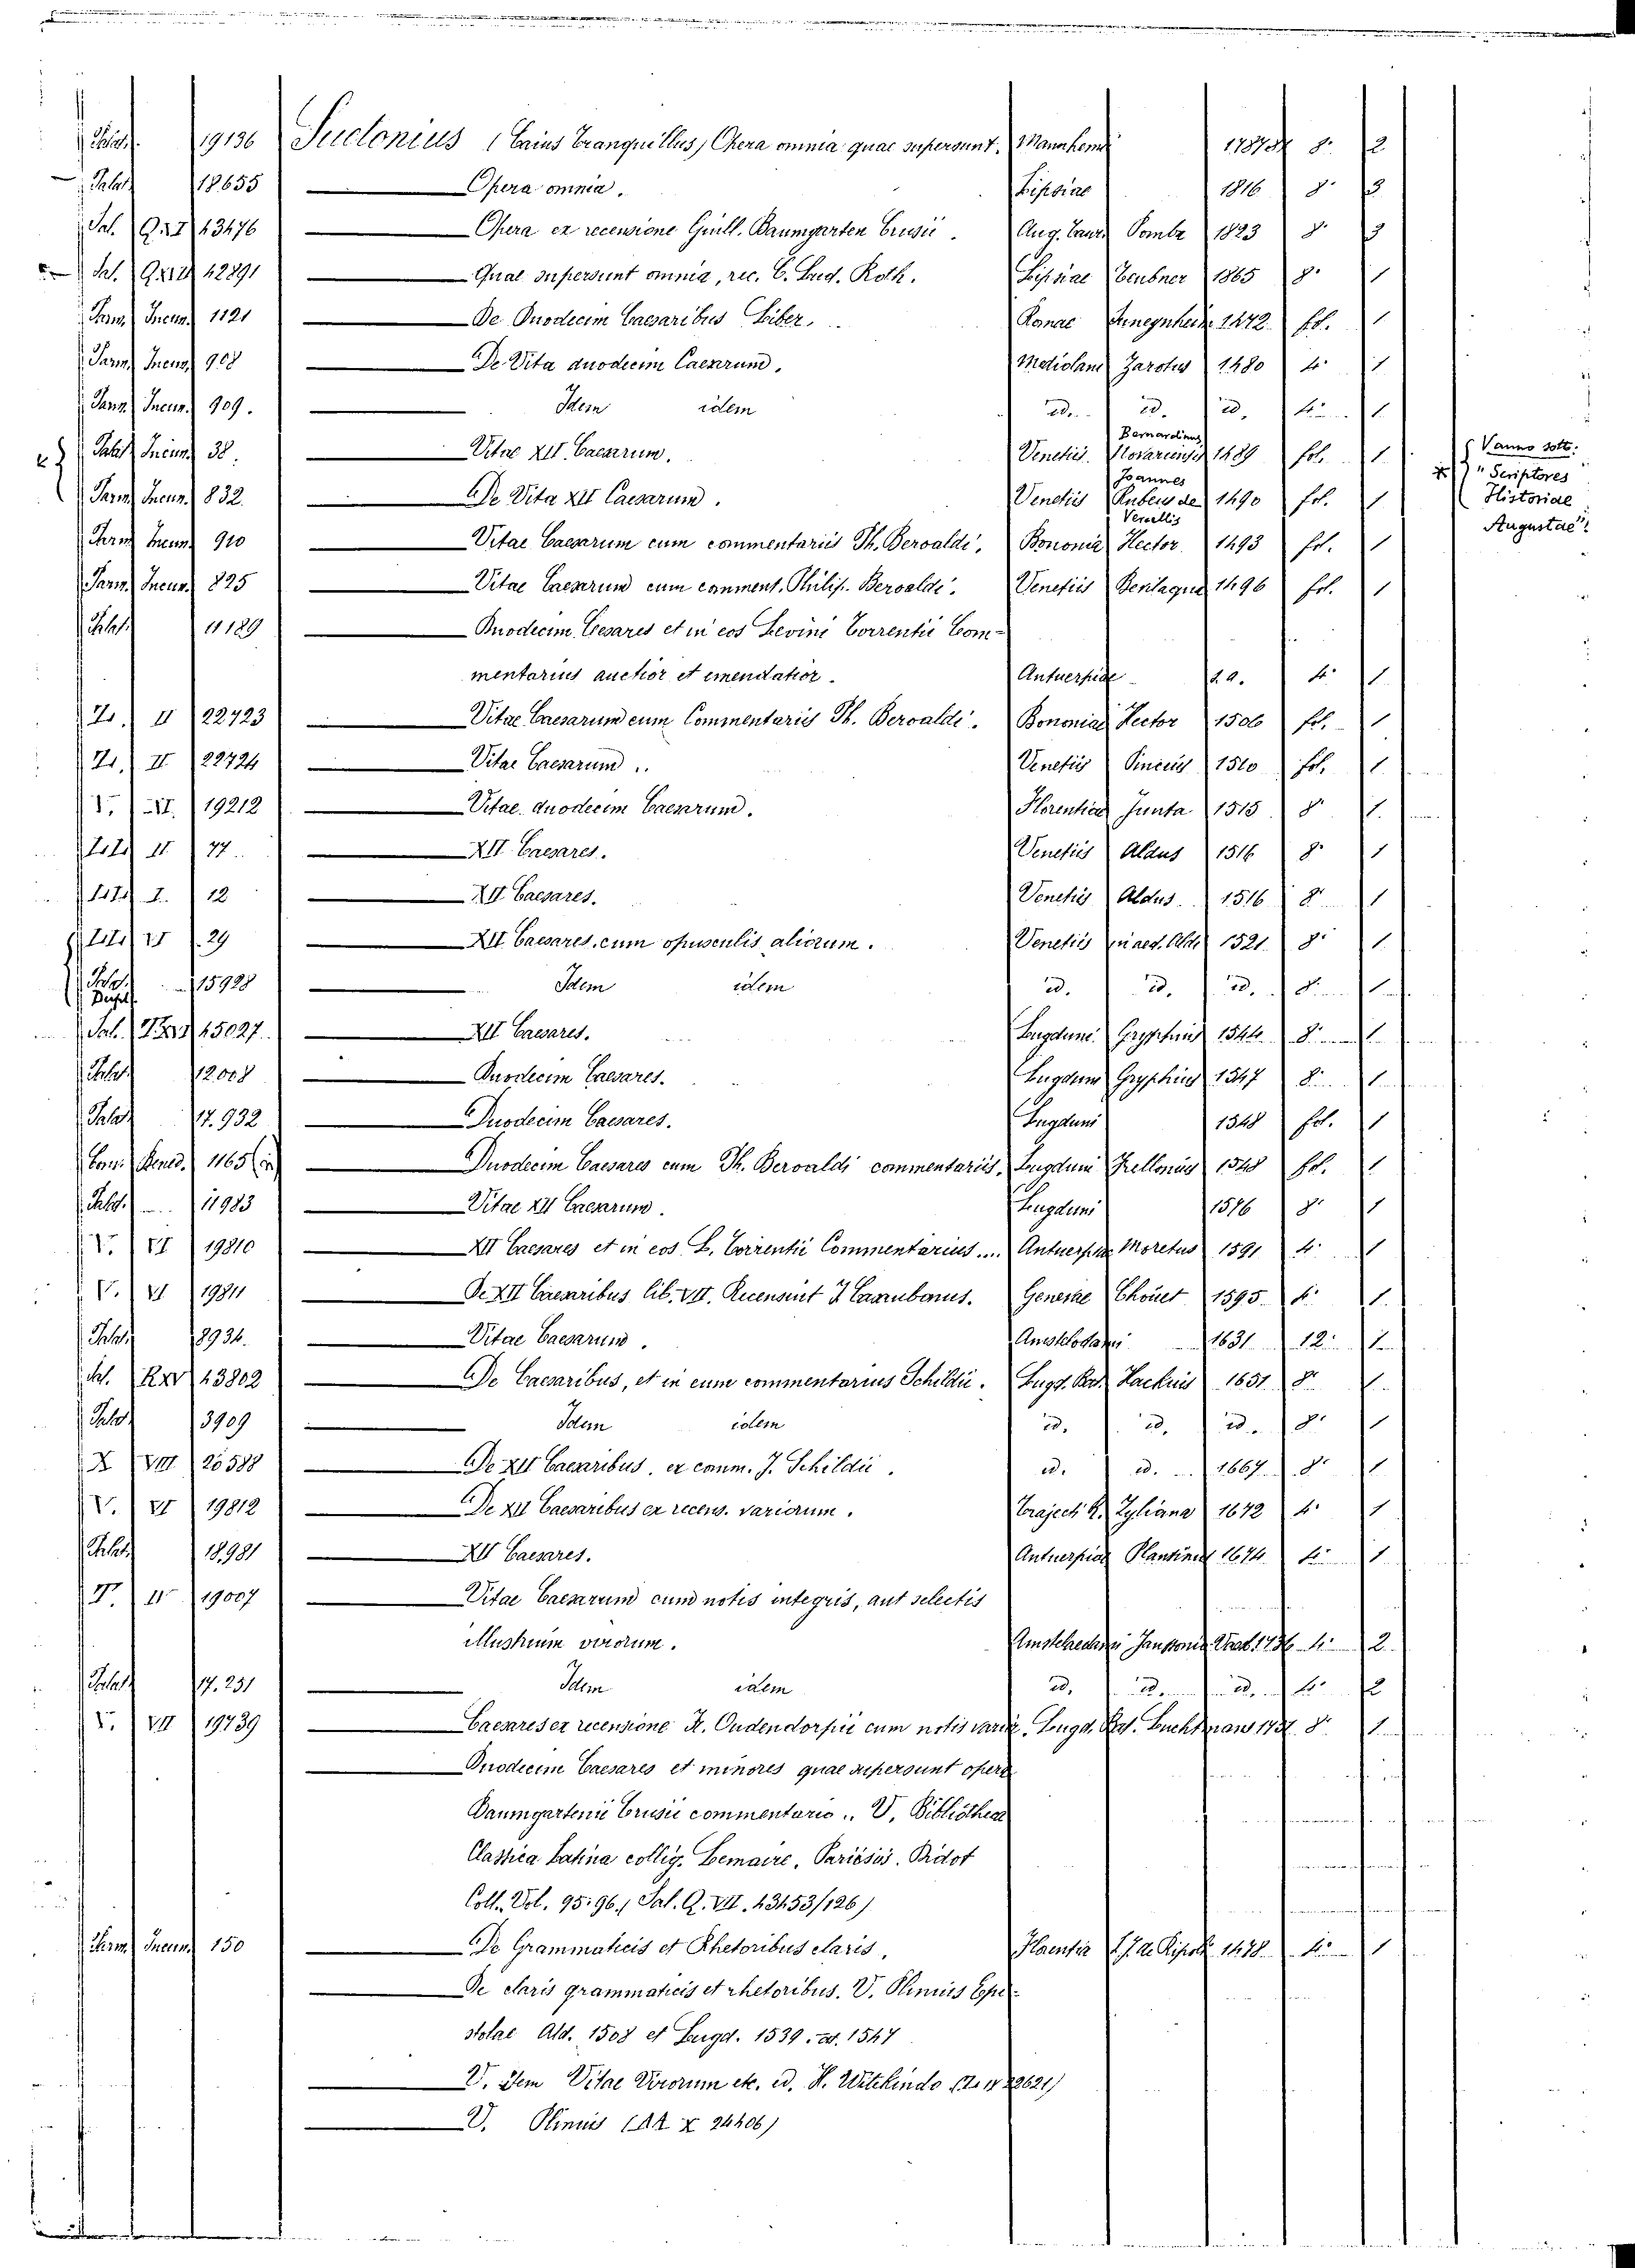 Palat. 19136 Suetonius (Caius Tranquillus) Opera omnia quae supersunt. Mannhemi 1787 8° 2
Palat. 18655 Opera omnia. Lipsiae 1816 8° 3
Sal. Q.VII 43476 Opera ex recensione Guill. Baumgarten Crusii. Aug. Taur. Pomba 1823 8° 3
Sal. 42891 Quae supersunt omnia, rec. C. Lud. Roth. Lipsiae Teubner 1865 8° 1
Parm. Incun. 1121 De Duodecim Caesaribus Liber. Romae 1472 fol. 1
Parm. Incun. 908 De Vita duodecim Caesarum. Mediolani Zarotus 1480 4° 1
Parm. Incun. 909. Idem idem id. id. id. 4° 1
Palat. Incun. 38. Vitae XII Caesarum. Venetiis. Bernardinus Novariensis 1489 fol. 1
Vanno sotto:
"Scriptores
Historiae
Augustae"
Parm. Incun. 832. De Vita XII Caesarum. Venetiis Joannes Rubeus de Vercellis 1490 fol. 1
Parm. Incun. 910 Vitae Caesarum cum commentariis Ph. Beroaldi. Bononia Hector 1493 fol. 1
Parm. Incun. 825 Vitae Caesarum cum comment. Philip. Beroaldi. Venetiis Bevilaqua 1496 fol. 1
Palat. 11189 Duodecim Cesares et in eos Levini Torrentii Com-
mentarius auctior et emendatior. Antuerpiae 4° 1
II 22723 Vitae Caesarum cum Commentariis Ph. Beroaldi. Bononiae Hector 1506 fol. 1
II 22724 Vitae Caesarum. Venetiis Pincius 1510 fol. 1
19212 Vitae duodecim Caesarum. Florentiae Junta 1515 8° 1
II 77 XII Caesares. Venetiis Aldus 1516 8° 1
I. 12 XII Caesares. Venetiis Aldus 1516 8° 1
29 XII Caesares, cum opusculis aliorum. Venetiis in aed. Aldi 1521 8° 1
Palat. Dupl. 15928 Idem idem id. id. id. 8° 1
Sal. 45027 XII Caesares. Lugduni Gryphius 1544 8° 1
Palat. 12008 Duodecim Caesares. Lugduni Gryphius 1547 8° 1
Palat. 17.932 Duodecim Caesares. Lugduni 1548 fol. 1
Bened. 1165 Duodecim Caesares cum Ph. Beroaldi commentariis. Lugduni Frellonius 1548 fol. 1
Palat. 11983 Vitae XII Caesarum. Lugduni 1576 8° 1
V. VI 19810 XII Caesares et in eos L. Torrentii Commentarius.... Antuerpiae Moretus 1591 4° 1
V. VI 19811 De XII Caesaribus lib. VIII. Recensuit I. Casaubonus. Genevae Choüet 1595 4° 1
Palat. 8934. Vitae Caesarum. Amstelodami 1631 12° 1
Sal. 43802 De Caesaribus, et in eum commentarius Schildii. Lugd. Bat. Hackius 1651 8° 1
Palat. 3909 Idem idem id. id. id. 8° 1
X VIII 25588 De XII Caesaribus, ex comm. J. Schildii. id. id. 1667 8° 1
V. VI 19812 De XII Caesaribus ex recens. variorum. Trajecti R. Zyliana 1672 4° 1
Palat. 18.981 XII Caesares. Antuerpiae Plantiniana 1674 4° 1
19007 Vitae Caesarum cum notis integris, aut selectis
illustrium virorum. 1736 4° 2
Palat. 17.231 Idem idem id. id. id. 4° 2
V. VII 19739 Caesares ex recensione F. Oudendorpii cum notis varior. Lugd. Bat. Luchtmans 1751 8° 1
Duodecim Caesares et minores quae supersunt opera
Baumgartenii Crusii commentario. V. Bibliotheca
Classica Latina collig. Lemaire. Parisiis. Didot
Coll. Vol. 95. 96. (Sal. Q. VII. 43453/126)
Parm. Incun. 150 De Grammaticis et Rhetoribus claris. Florentiae J. de Ripoli 1478 4° 1
De claris grammaticis et rhetoribus. V. Plinius Epi-
stolae Ald. 1508 et Lugd. 1539. et. 1547
V. Idem Vitae Virorum etc. ed. H. Witekindo 22621)
V. Plinius 24406)